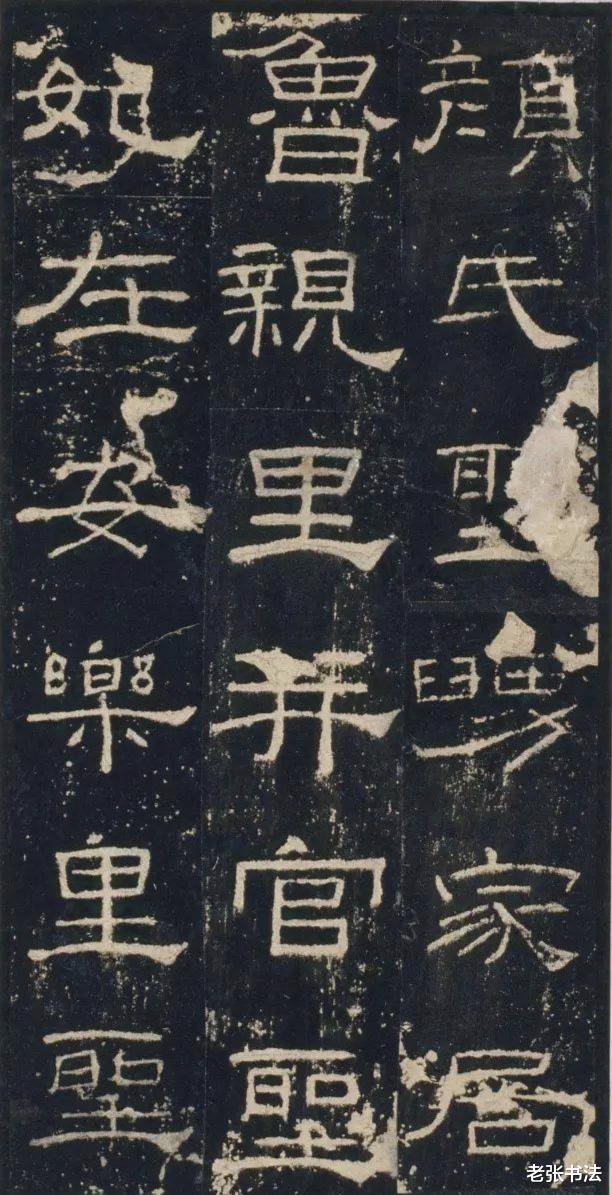 顏氏聖舅家居
魯親里并官聖
妃在安樂里聖
老张书法